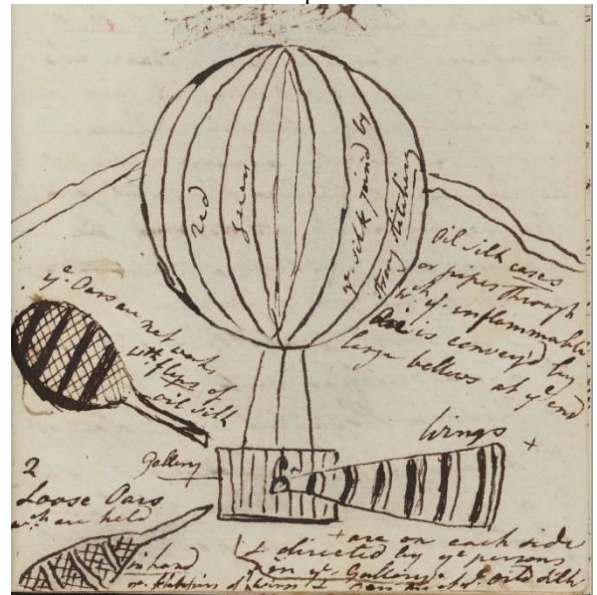 red
green
ye silk joined by
strong stitching
Oil silk cases
or pipes through
wch ye inflammable
Air is convey'd by
large bellows at ye end
ye Oars are net work
wth flaps of
oil silk
Wings +
Gallery
2
Loose Oars
wch are held
in hand
+ are on each side
& directed by ye persons
in ye Gallery
oil silk